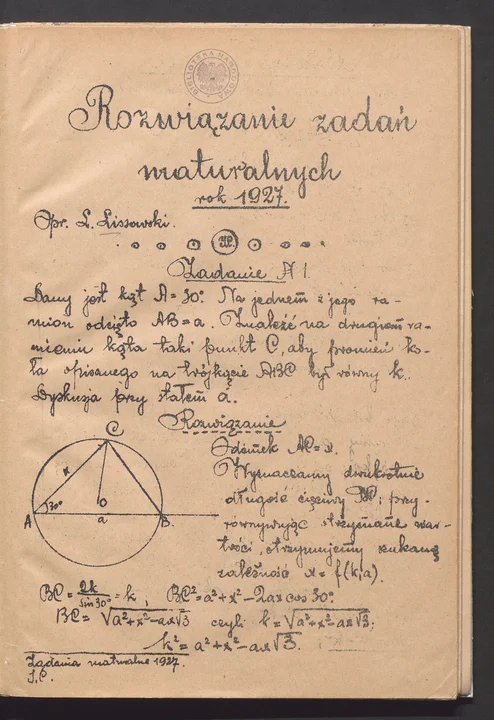 BIBLIOTEKA NARODOWA
Rozwiązanie zadań
maturalnych
rok 1927.
Opr. L. Lissowski.
Zadanie № 1.
Dany jest kąt A = 30°. Na jednem z jego ra-
mion odcięto AB = a. Znaleźć na drugiem ra-
mieniu kąta taki punkt C, aby promień ko-
ła opisanego na trójkącie ABC był równy k.
Dyskusja przy stałem a.
Rozwiązanie
Odcinek AC = x.
Wyznaczamy dwukrotnie
długość cięciwy BC i przy-
równywując otrzymane war-
tości, otrzymujemy szukaną
zależność x = f(k, a).
C
x
30°
O
A
a
B
BC = 2k / sin 30° = k, BC² = a² + x² - 2ax cos 30°
BC = √a² + x² - ax√3 czyli k = √a² + x² - ax√3;
k² = a² + x² - ax√3.
Zadania maturalne 1927.